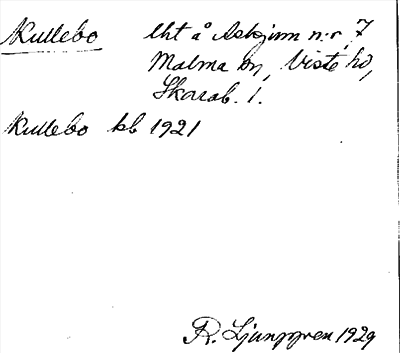 Kullebo lht å Askjum n:r 7
Malma sn, Viste hd,
Skarab. l.
Kullebo kb 1921
R. Ljunggren 1929